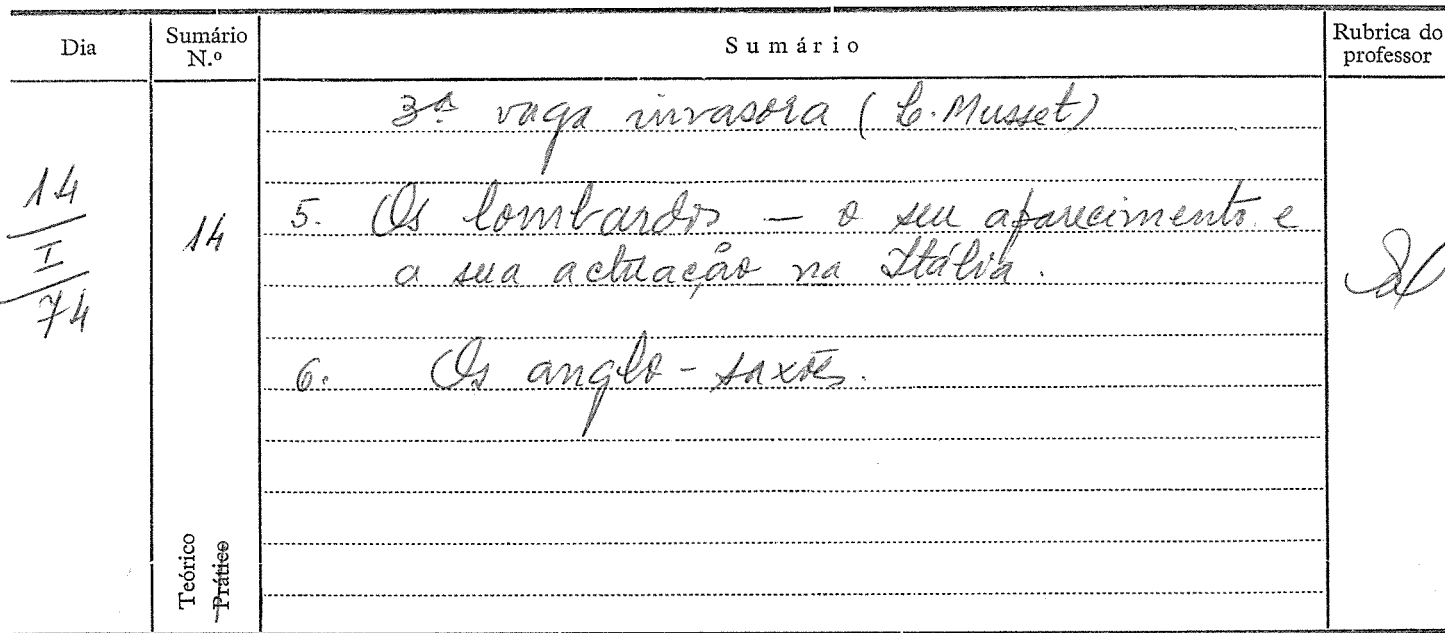 Dia
Sumário
N.º
Sumário
Rubrica do
professor
14
I
74
14
3ª vaga invasora (L. Musset)
5. Os lombardos – o seu aparecimento e
a sua actuação na Itália.
6. Os anglo-saxões.
Teórico
Prático